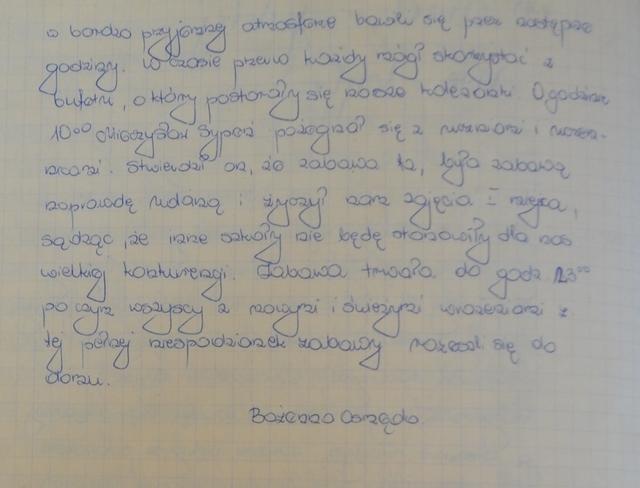 o bardzo przyjaznej atmosferze bawili się przez następne
godziny. W czasie przerw każdy mógł skorzystać z
bufetu, o który postarały się nasze koleżanki. O godzinie
10⁰⁰ Mieczysław pożegnał się z nauczycielami i
Stwierdził on, że zabawa ta, była zabawą
naprawdę udaną i życzył nam zajęcia I miejsca,
sądząc, że inne szkoły nie będę stanowiły dla nas
wielkiej konkurencji. Zabawa trwała do godz. 23⁰⁰
po czym wszyscy z nowymi i świeżymi wrażeniami z
tej pełnej niespodzianek zabawy rozeszli się do
domu.
Bożenna